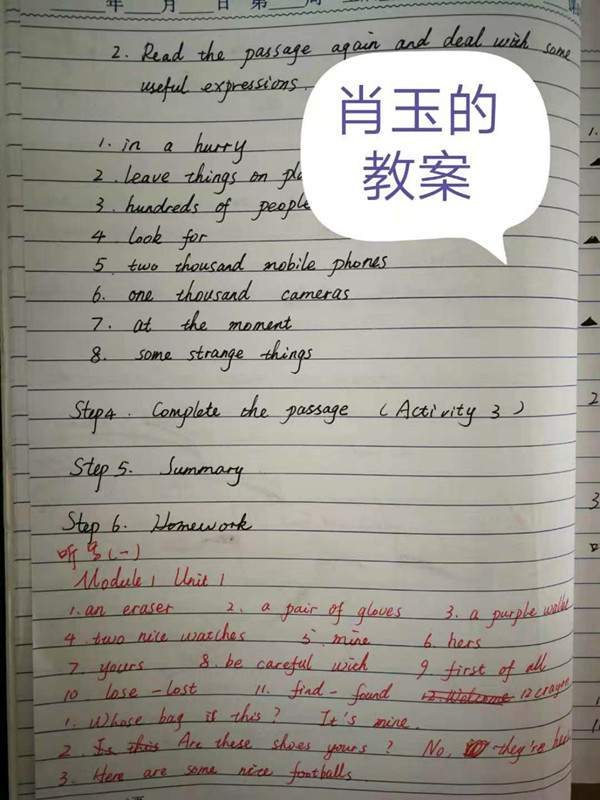 年 月 日 第 周
2. Read the passage again and deal with some
useful expressions.
肖玉的
教案
1. in a hurry
2. leave things on
3. hundreds of people
4. look for
5. two thousand mobile phones
6. one thousand cameras
7. at the moment
8. some strange things
Step4. Complete the passage (Activity 3)
Step 5. Summary
Step 6. Homework
听写(一)
Module 1 Unit 1
1. an eraser 2. a pair of gloves 3. a purple wallet
4. two nice watches 5. mine 6. hers
7. yours 8. be careful with 9. first of all
10 lose - lost 11. find - found 12. Welcome 12 crayon
1. Whose bag is this? It's mine.
2. Is this Are these shoes yours? No, they're hers
3. Here are some nice footballs.